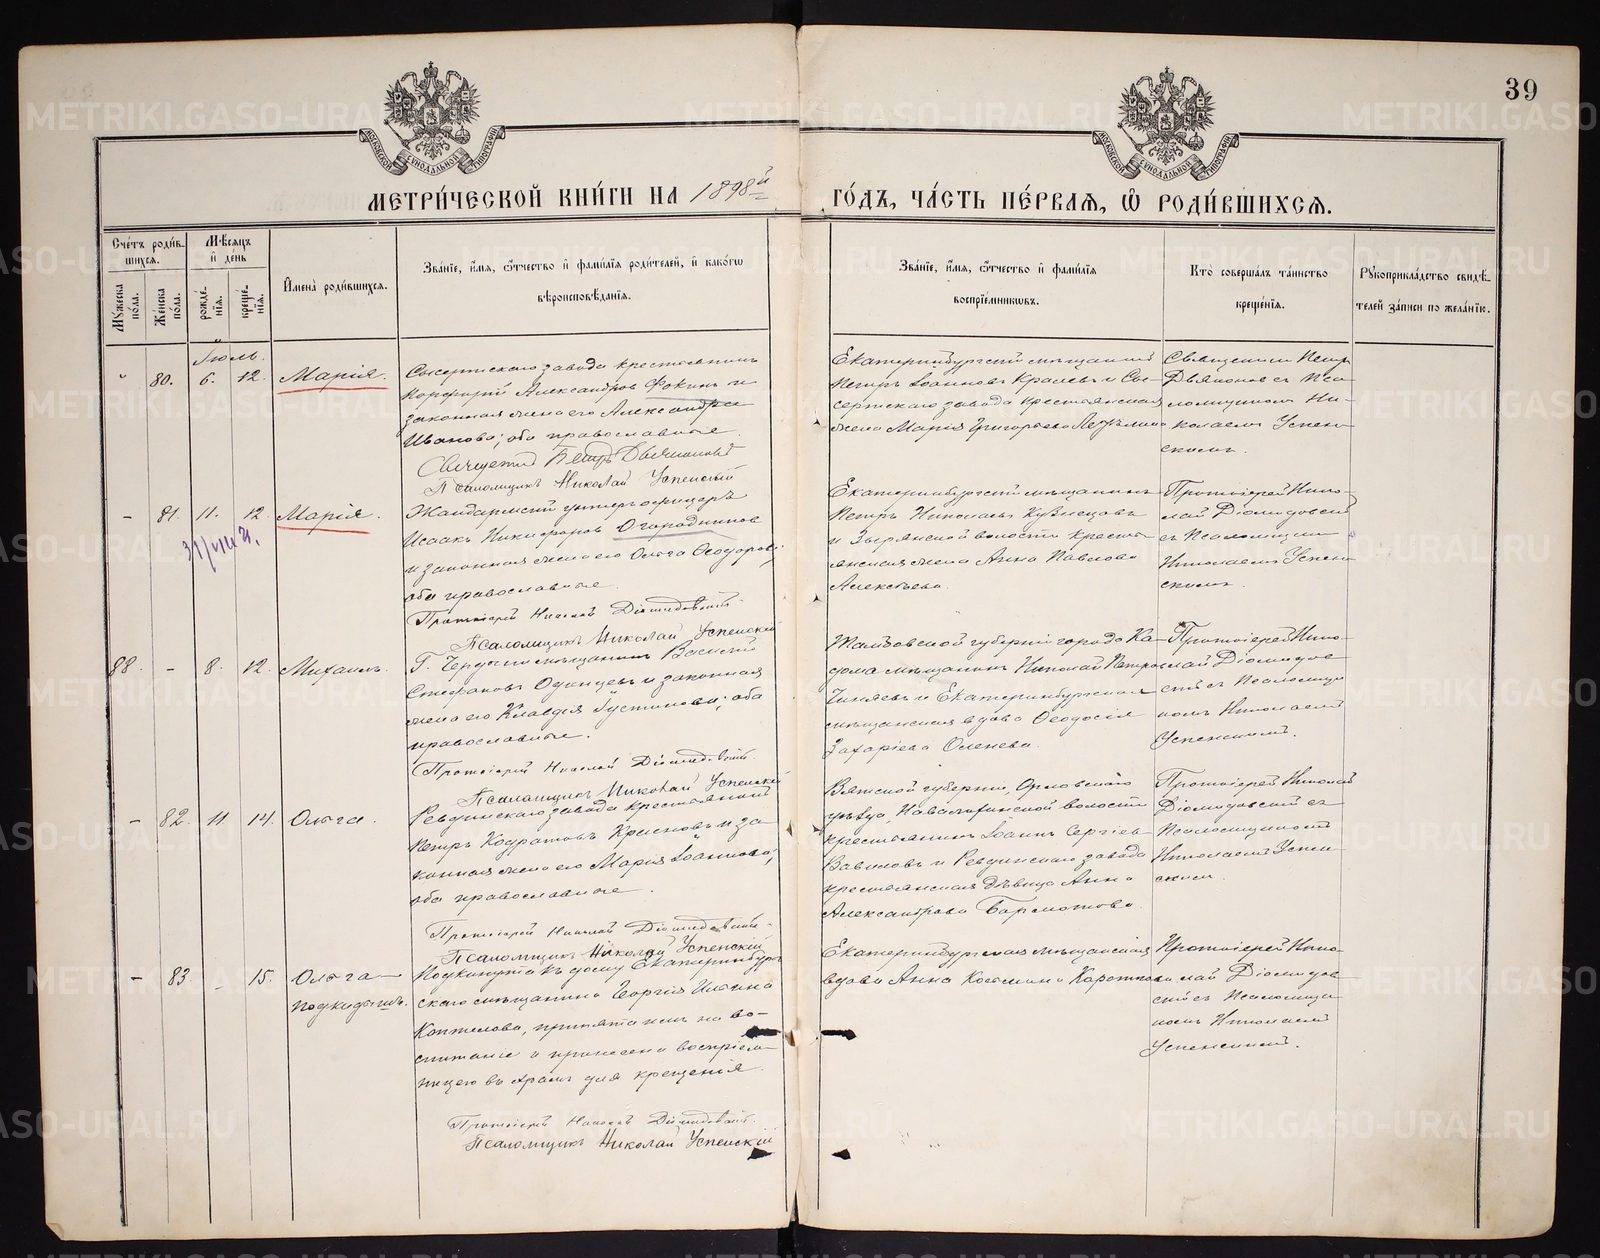 39
МОСКОВСКОЙ СѴНОДАЛЬНОЙ ТИПОГРАФІИ
МОСКОВСКОЙ СѴНОДАЛЬНОЙ ТИПОГРАФІИ
МЕТРИ́ЧЕСКОЙ КНИ́ГИ НА 1898й
ГО́ДЪ, ЧА́СТЬ ПЕ́РВАЯ, Ѡ РОДИ́ВШИХСЯ.
Сче́тъ роди́вшихся.
Мѣ́сяцъ и де́нь
Мꙋ́жеска по́ла.
Же́нска по́ла.
рожде́нїя.
креще́нїя.
И҆мена̀ роди́вшихся.
Зва́нїе, и҆́мя, ѻ҆́тчество и҆ фами́лїя роди́телей, и҆ како́гѡ
вѣроисповѣ́данїя.
Зва́нїе, и҆́мя, ѻ҆́тчество и҆ фами́лїя
воспрїе́мникѡвъ.
Кто̀ соверша́лъ та́инство
креще́нїя.
Рꙋкоприкла́дство свидѣ́телей за́писи по жела́нїю.
Іюль.
80. 6. 12. Марія.
Сысертскаго завода крестьянинъ
Порфирій Александровъ Фокинъ и
законная жена его Александра
Иванова; оба православные.
Священникъ Петръ Дьяконовъ
Псаломщикъ Николай Успенскій
Екатеринбургскій мѣщанинъ
Петръ Іоанновъ и Сысертскаго завода крестьянская
жена Марія Григорьева
Священникъ Петръ
Дьяконовъ съ Псаломщикомъ Николаемъ Успенскимъ.
– 81. 11. 12. Марія.
31/VIII 21.
Жандармскій унтеръ офицеръ
Исаакъ Никифоровъ Огородниковъ
и законная жена его Ольга Ѳеодорова;
оба православные.
Протоіерей Николай Діомидовскій.
Псаломщикъ Николай Успенскій
Екатеринбургскій мѣщанинъ
Петръ Николаевъ Кузнецовъ
и Зырянской волости крестьянская жена Анна Павлова
Алексѣева.
Протоіерей Николай Діомидовскій
съ Псаломщикомъ
Николаемъ Успенскимъ.
88. – 8. 12. Михаилъ.
Г. Чердыни мѣщанинъ Василій
Стефановъ Одинцевъ и законная
жена его Клавдія Іустинова; оба
православные.
Протоіерей Николай Діомидовскій.
Псаломщикъ Николай Успенскій
Тамбовской губерніи города Кадома мѣщанинъ Николай Петровъ
и Екатеринбургская
мѣщанская вдова Ѳеодосія
Захаріева Оленева.
Протоіерей Николай Діомидовскій съ Псаломщикомъ Николаемъ
Успенскимъ.
– 82. 11. 14. Ольга.
Ревдинскаго завода крестьянинъ
Петръ Кодратовъ Красновъ и законная жена его Марія Іоаннова;
оба православные.
Протоіерей Николай Діомидовскій.
Псаломщикъ Николай Успенскій
Вятской губерніи, Орловскаго
уѣзда, волости
крестьянинъ Іоаннъ Сергіевъ
Вавиловъ и Ревдинскаго завода
крестьянская дѣвица Анна
Александрова Бармотова.
Протоіерей Николай
Діомидовскій съ
Псаломщикомъ
Николаемъ Успенскимъ.
– 83. – 15. Ольга –
подкидышъ.
Подкинута къ дому Екатеринбургскаго мѣщанина Георгія Иванова
Коптелова, принята имъ на воспитаніе и принесена воспріемницею въ храмъ для крещенія.
Протоіерей Николай Діомидовскій.
Псаломщикъ Николай Успенскій
Екатеринбургская мѣщанская
вдова Анна Козмина Короткова
Протоіерей Николай Діомидовскій съ Псаломщикомъ Николаемъ
Успенскимъ.
METRIKI.GASO-URAL.RU